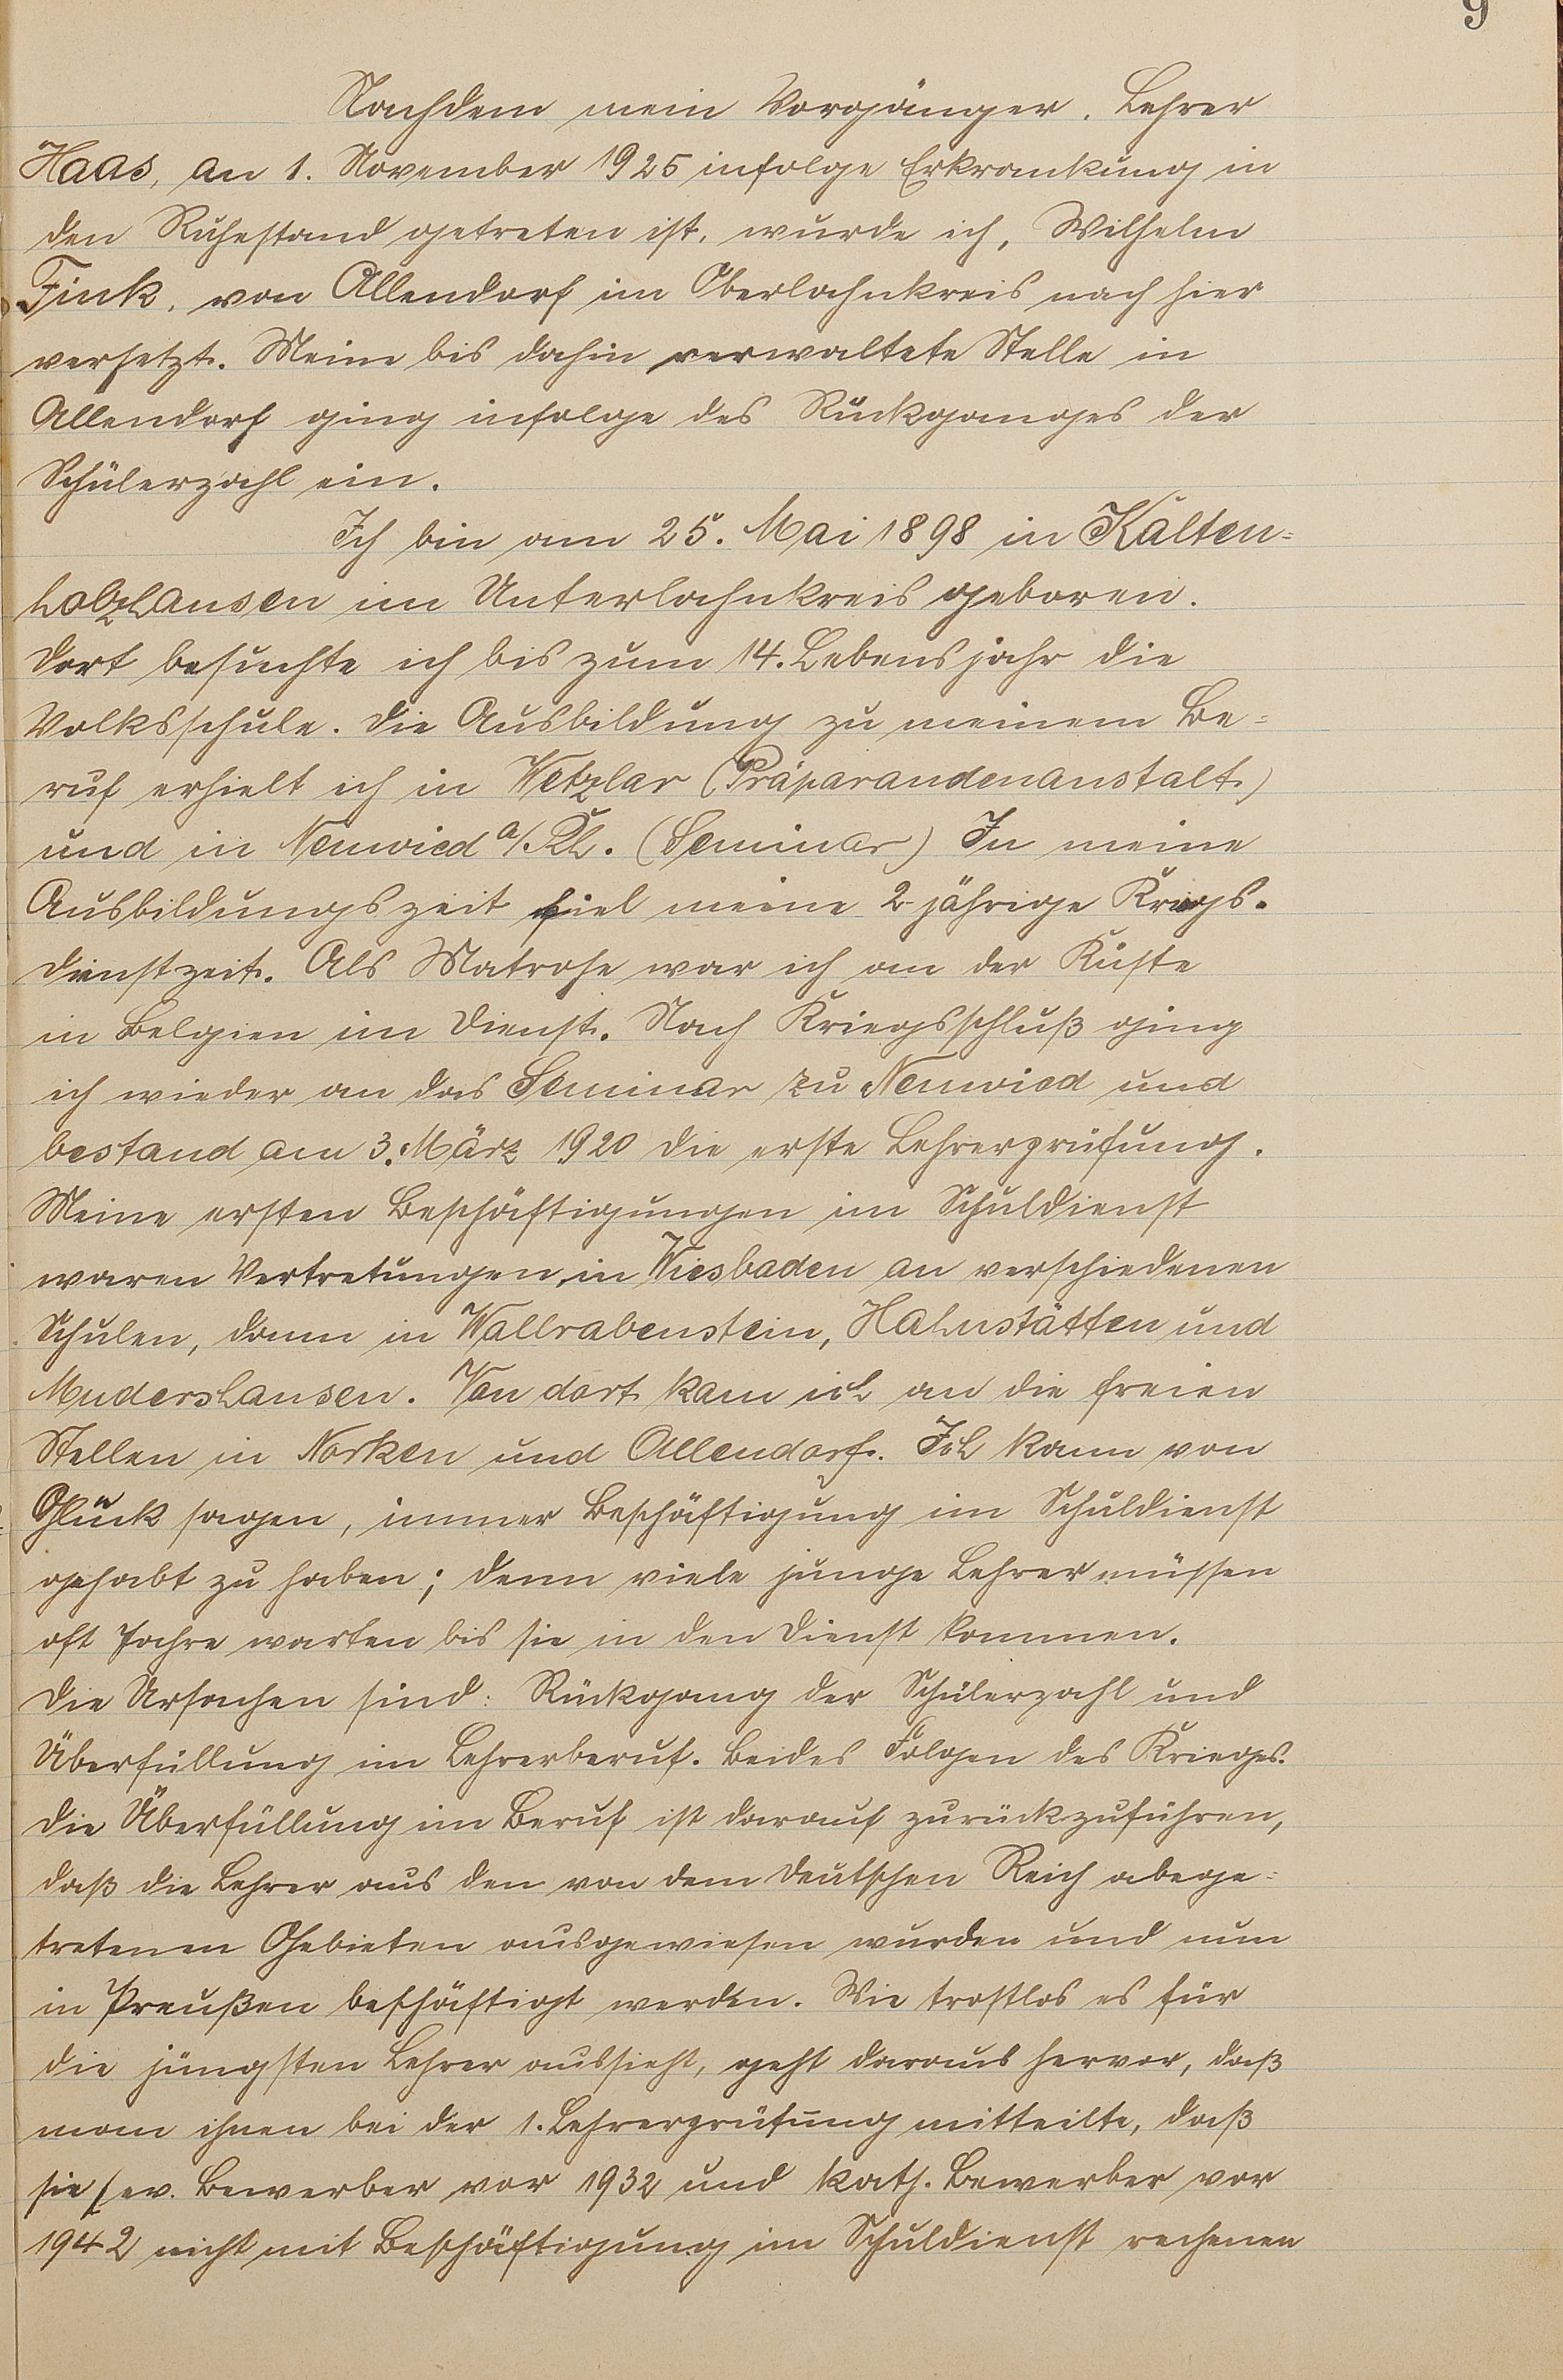 9
Nachdem mein Vorgänger, Lehrer
Haas, an 1. November 1925 infolge Erkrankung in
den Ruhestand getreten ist, wurde ich, Wilhelm
Fink, von Allendorf im Oberlahnkreis nach hier
versetzt. Meine bis dahin verwaltete Stelle in
Allendorf ging infolge des Rückganges der
Schülerzahl ein.
Ich bin am 25. Mai 1898 in Kalten=
holzhausen im Unterlahnkreis geboren.
Dort besuchte ich bis zum 14. Lebensjahr die
Volksschule. Die Ausbildung zu meinem Be=
ruf erhielt ich in Wetzlar (Präparandenanstalt)
und in Neuwied a/Rh. (Seminar) In meine
Ausbildungszeit fiel meine 2-jährige Kriegs-
dienstzeit. Als Matrose war ich an der Küste
in Belgien im Dienst. Nach Kriegsschluß ging
ich wieder an das Seminar zu Neuwied und
bestand am 3. März 1920 die erste Lehrerprüfung.
Meine ersten Beschäftigungen im Schuldienst
waren Vertretungen, in Wiesbaden an verschiedenen
Schulen, dann in Wallrabenstein, Hahnstätten und
Mudershausen. Von dort kam ich an die freien
Stellen in Norken und Allendorf. Ich kann von
Glück sagen, immer Beschäftigung im Schuldienst
gehabt zu haben; denn viele junge Lehrer müssen
oft Jahre warten bis sie in den Dienst kommen.
Die Ursachen sind: Rückgang der Schülerzahl und
Überfüllung im Lehrerberuf. Beides Folgen des Krieges.
Die Überfüllung im Beruf ist darauf zurückzuführen,
daß die Lehrer aus den von dem Deutschen Reich abege=
tretenen Gebieten ausgewiesen wurden und nun
in Preußen beschäftigt werden. Wie trostlos es für
die jüngsten Lehrer aussieht, geht daraus hervor, daß
man ihnen bei der 1. Lehrerprüfung mitteilte, daß
sie (ev. Bewerber vor 1932 und kath. Bewerber vor
1942 nicht mit Beschäftigung im Schuldienst rechenen